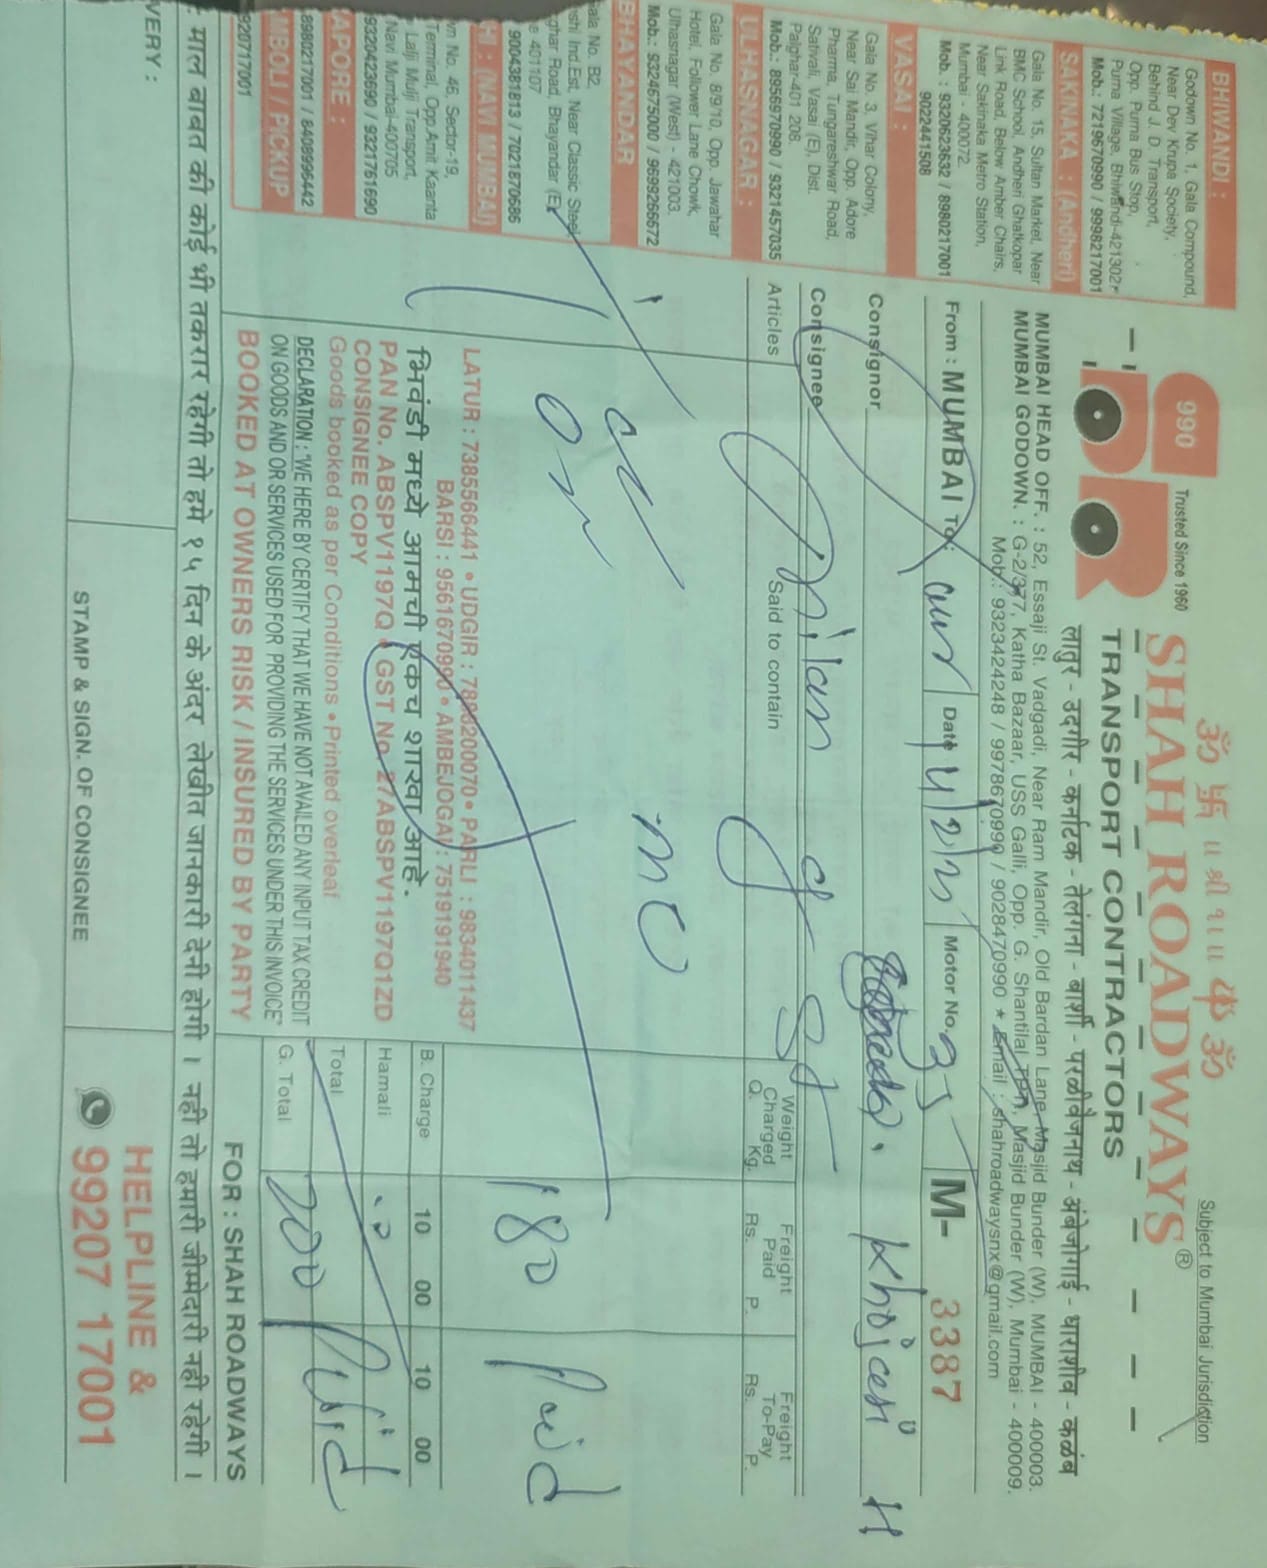 Subject to Mumbai Jurisdiction
ॐ 卐 ॥ श्री १ ॥। ॐ
990
Trusted Since 1960
SHAH ROADWAYS®
TRANSPORT CONTRACTORS
लातुर - उदगीर - कर्नाटक - तेलंगना - बार्शी - परळीवैजनाथ - अंबेजोगाई - धाराशीव - कळंब
MUMBAI HEAD OFF. : 52, Essaji St. Vadgadi, Near Ram Mandir, Old Bardan Lane Masjid Bunder (W), MUMBAI - 400003.
MUMBAI GODOWN. : G-2/377, Katha Bazaar, USS Galli, Opp. G. Shantilal Masjid Bunder (W), Mumbai - 400009.
Mob.: 9323424248 / 9978670999 / 9028470990 * Email : shahroadwaysnx@gmail.com
BHIWANDI :
Godown No. 1, Gala Compound,
Near Dev Krupa Society,
Behind J. D. Transport,
Opp. Purna Bus Stop,
Purna Village, Bhiwandi-421302
Mob.: 7219670990 / 9998217001
SAKINAKA : (Andheri)
Gala No. 15, Sultan Market, Near
BMC School, Andheri Ghatkopar
Link Road, Below Amber Chairs,
Near Sakinaka Metro Station,
Mumbai - 400072.
Mob. : 9320623632 / 8980217001
9022441508
VASAI :
Gala No. 3, Vihar Colony,
Near Sai Mandir, Opp. Adore
Pharma, Tungareshwar Road,
Sativali, Vasai (E), Dist.
Palghar-401 208.
Mob.: 8956970990 / 9321457035
ULHASNAGAR :
Gala No. 8/9/10, Opp. Jawahar
Hotel, Follower Lane Chowk,
Ulhasnagar (West) - 421003.
Mob.: 9324675000 / 9699266672
BHAYANDAR
ala No. B2,
shi Ind.Est, Near Classic Steel
ghar Road, Bhayandar (E),
e 401107
9004381813 / 7021870686
HI : (NAVI MUMBAI)
m No. 46, Sector-19,
Terminal, Opp.Amit Kaanta
Lalji Mulji Transport,
Navi Mumbai-400705
9320423690 / 9321761690
APORE :
8980217001 / 8408996442
MBOLI / PICKUP
9920717001
From : MUMBAI To. Latur Date 4/2/25 Motor No. 35
M- 3387
Consignor Khojesi H
Consignee Milan
Articles
Said to contain
Weight
Charged
Q. Kg.
Freight
Paid
Rs. P.
Freight
To-Pay
Rs. P.
180 Paid
LATUR : 7385566441 • UDGIR : 7888200070 • PARLI : 9834011437
BARSI : 9561670990 • AMBEJOGAI : 7519191940
भिवंडी मध्ये आमची एकच शाखा आहे.
PAN No. ABSPV1197Q • GST No. 27ABSPV1197Q1ZD
CONSIGNEE COPY
Goods booked as per Conditions • Printed overleaf
DECLARATION : "WE HERE BY CERTIFY THAT WE HAVE NOT AVAILED ANY INPUT TAX CREDIT
ON GOODS AND OR SERVICES USED FOR PROVIDING THE SERVICES UNDER THIS INVOICE"
BOOKED AT OWNERS RISK / INSURED BY PARTY
B. Charge 10 00 10 00
Hamali 10
Total
G. Total 200 Paid
FOR : SHAH ROADWAYS
माल बाबत की कोई भी तकरार रहेगी तो हमे १५ दिन के अंदर लेखीत जानकारी देनी होगी । नही तो हमारी जीम्मेदारी नही रहेगी ।
VERY :
STAMP & SIGN. OF CONSIGNEE
HELPLINE &
99207 17001